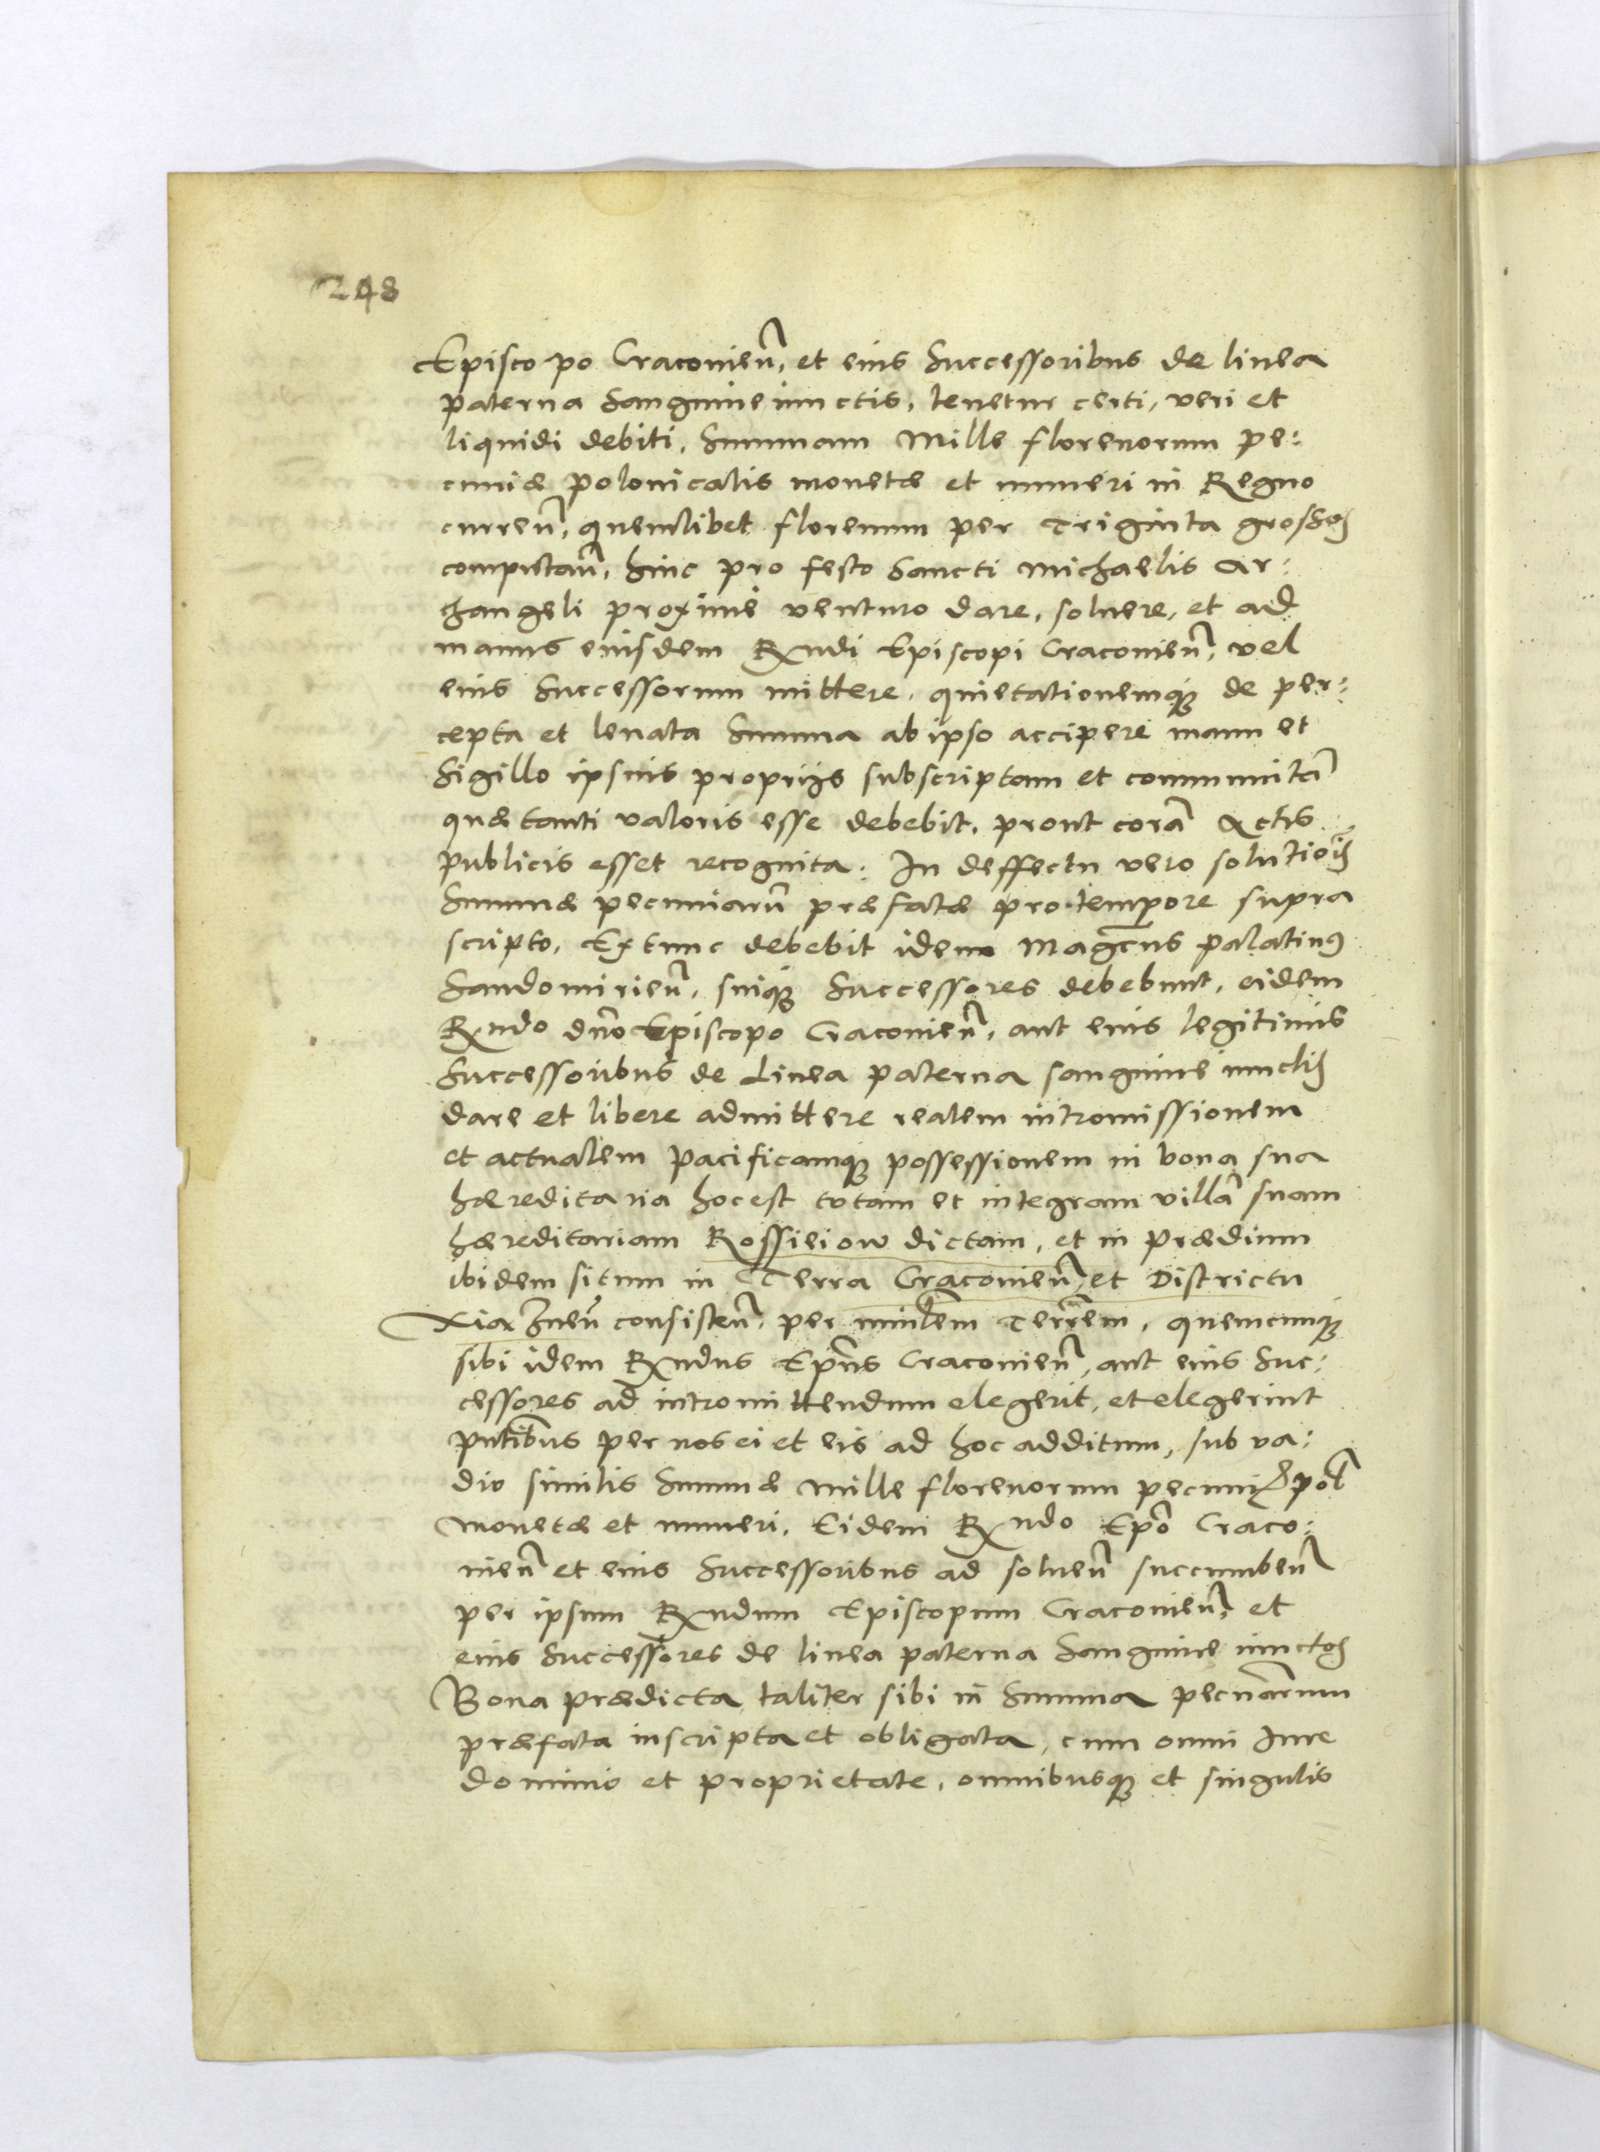 248
Episcopo Cracouien̄, et eius Successoribus de linea
paterna Sanguine iunctis, tenetur certi, veri et
liquidi debiti, Summam Mille florenorum pe:
cuniæ polonicalis monetæ et numeri in Regno
curren̄, quemlibet florenum per Triginta grossos
computan̄, hinc pro festo Sancti Michaelis Ar:
changeli proxime venturo dare, soluere, et ad
manus eiusdem Rx̄ndi Episcopi Cracouien̄, vel
eius Successorum mittere, quietationemq́ue de per:
cepta et leuata Summa ab ipso accipere manu et
Sigillo ipsius proprijs subscriptam et communitā
quæ tanti valoris esse debebit, prout corā Actis
publicis esset recognita: In deffectu vero solutiōis
Summæ pecuniarū præfatæ pro tempore supra
scripto, Extunc debebit idem Mag̅cus palatinus
Sandomirien̄, suiq́ue Successores debebunt, eidem
Rx̄ndo dn̄o Episcopo Cracouien̄, aut eius legitimis
Successoribus de Linea paterna sanguine iunctis
dare et libere admittere realem intromissionem
et actualem pacificamq́ue possessionem in bona sua
hæreditaria hoc est totam et integram villā suam
hæreditariam Kossieiow dictam, et in prædium
ibidem situm in Terra Cracouien̄, et Districtu
Xiąznen̄ consisten̄, per min̄lem Terr̄em, quemcunq́ue
sibi idem Rx̄ndus Ep̄us Cracouien̄, aut eius Suc:
cessores ad intromittendum elegerit, et elegerint
pn̄tibus per nos ei et eis ad hoc additum, sub va:
dio similis Summæ Mille florenorum pecuniæ pol̄
monetæ et numeri, Eidem Rx̄ndo Ep̄o Craco:
uien̄ et eius Successoribus ad soluen̄ succumben̄
per ipsum Rx̄ndum Episcopum Cracouien̄, et
eius Successores de linea paterna Sanguine iunctos
Bona prædicta, taliter sibi in Summa pecun̄arum
præfata inscripta et obligata, cum omni Iure
dominio et proprietate, omnibusq́ue et singulis